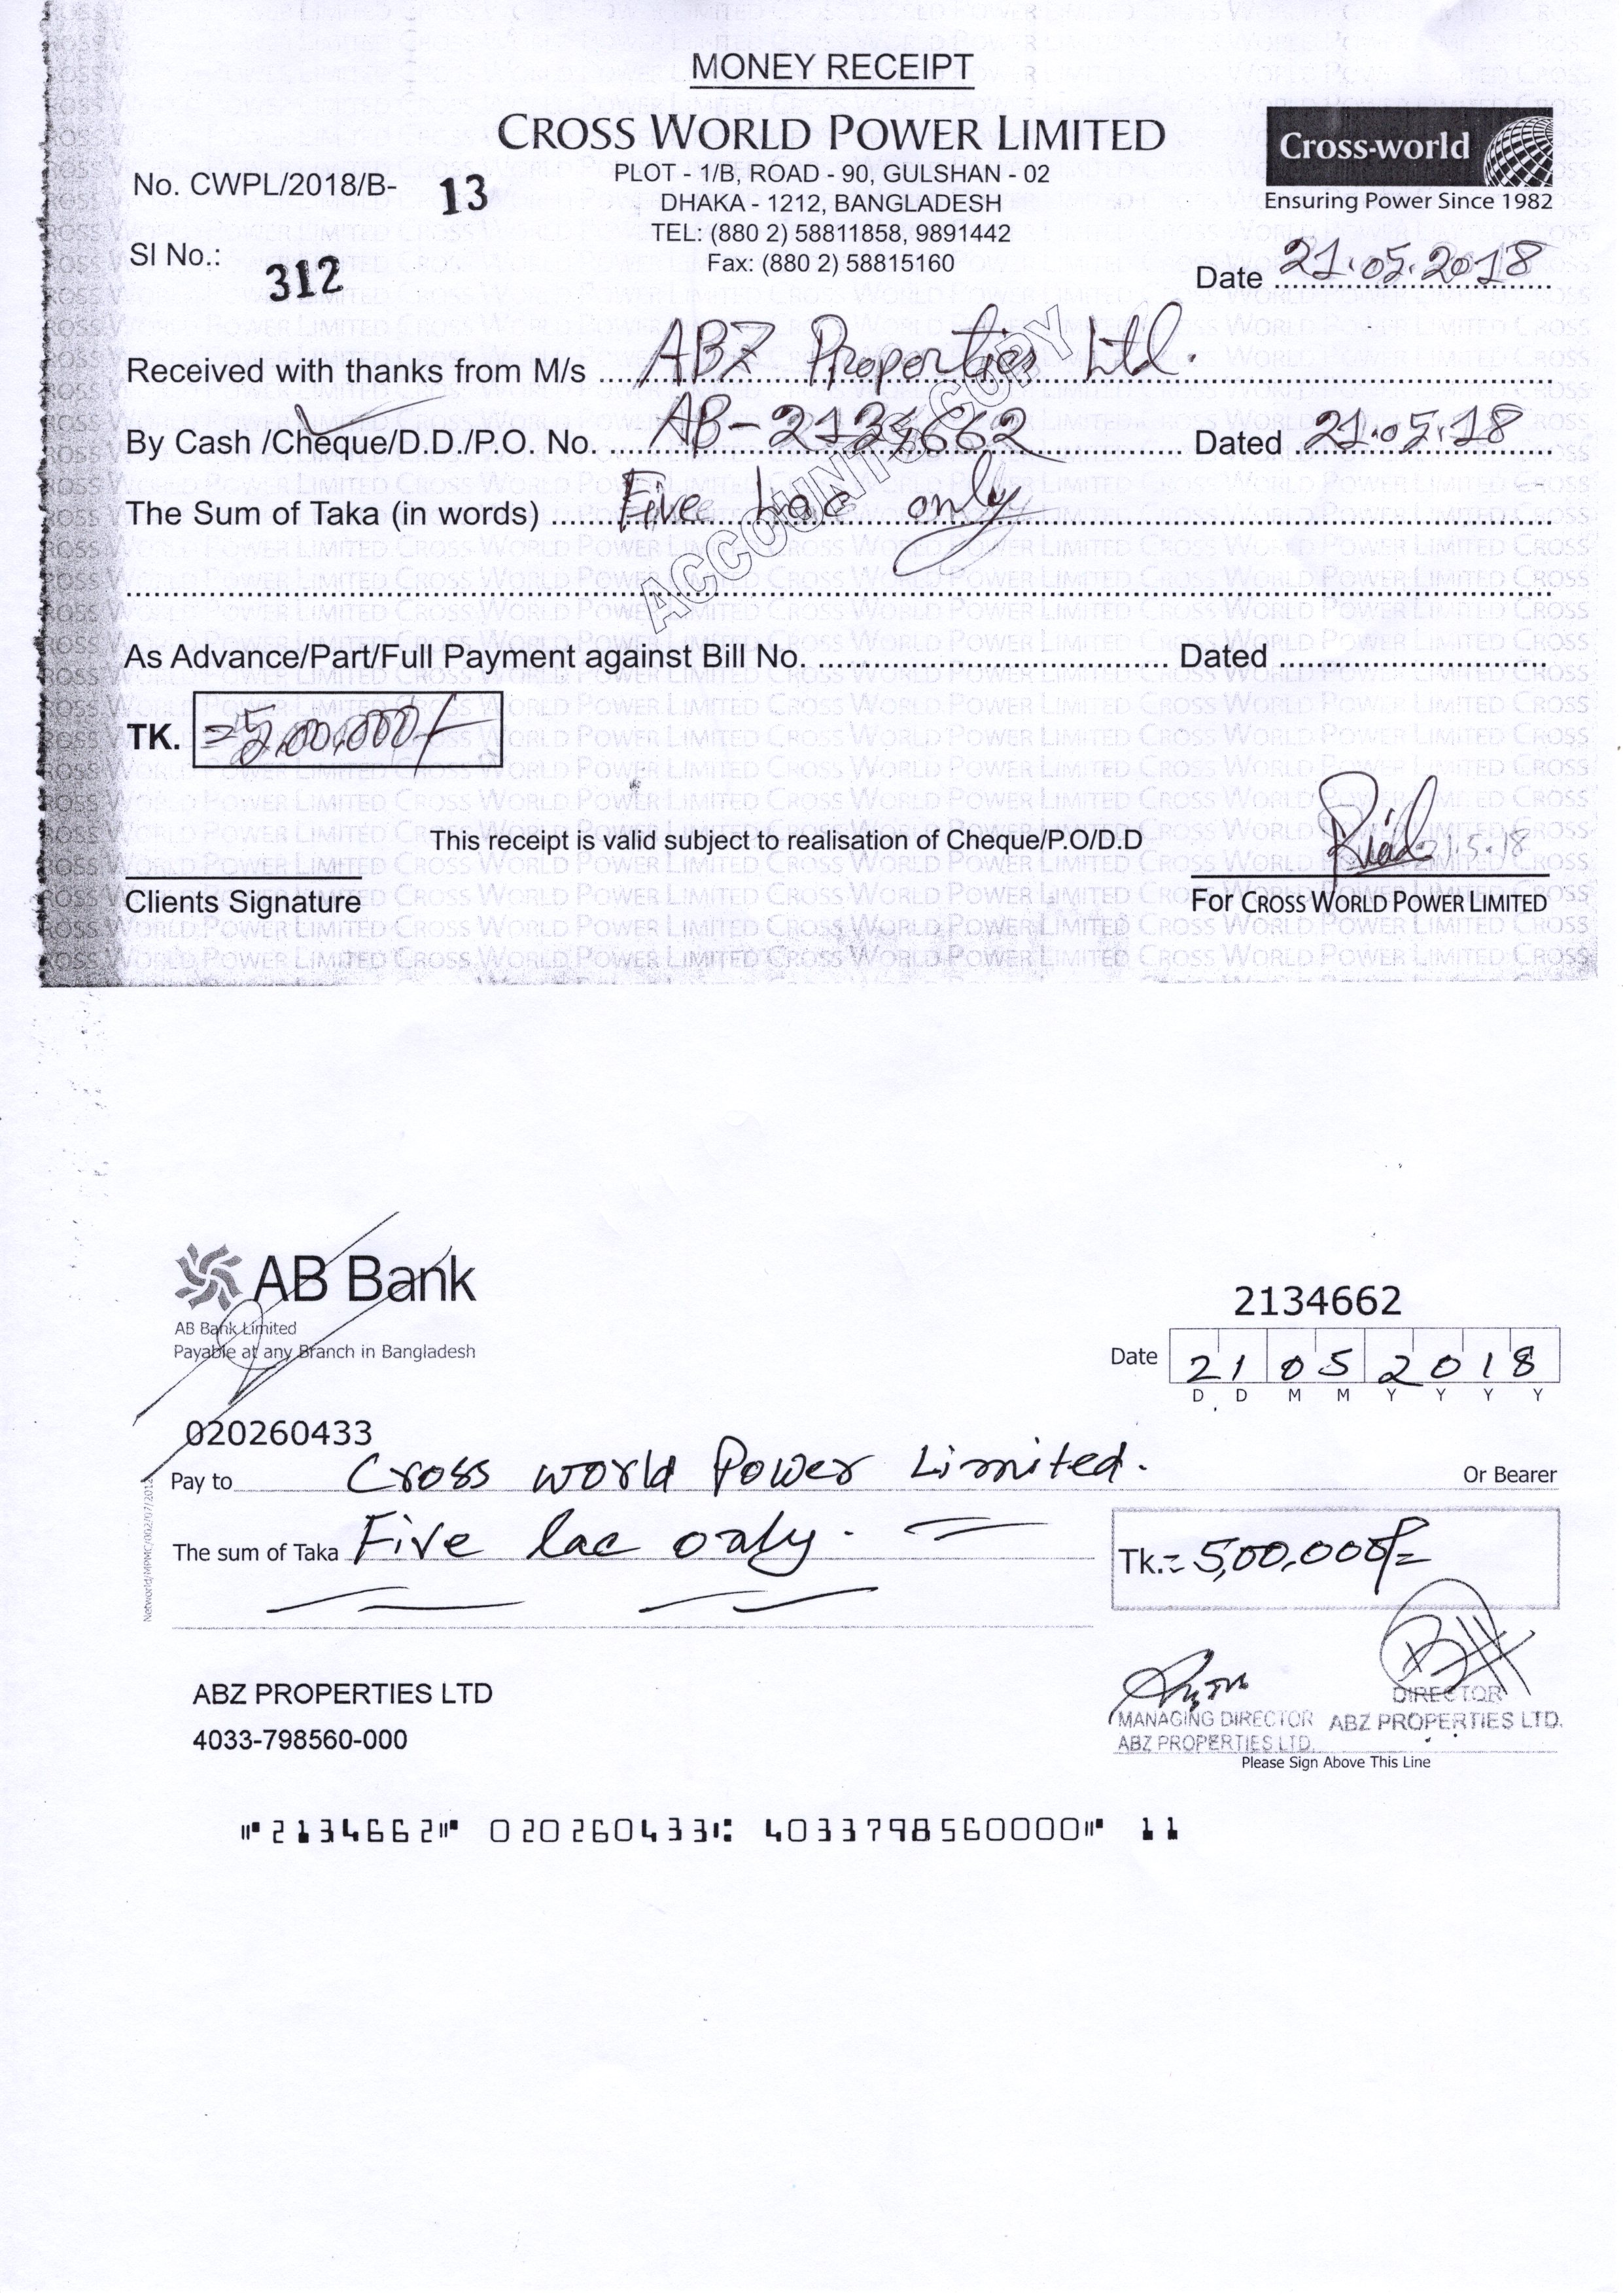 MONEY RECEIPT
CROSS WORLD POWER LIMITED
Cross-world
Ensuring Power Since 1982
No. CWPL/2018/B- 13
PLOT - 1/B, ROAD - 90, GULSHAN - 02
DHAKA - 1212, BANGLADESH
TEL: (880 2) 58811858, 9891442
Fax: (880 2) 58815160
Sl No.: 312
Date 21.05.2018
Received with thanks from M/s ABZ Properties Ltd.
By Cash /Cheque/D.D./P.O. No. AB-2134662 Dated 21.05.18
The Sum of Taka (in words) Five Lac only
ACCOUNTS COPY
As Advance/Part/Full Payment against Bill No. Dated
TK. =5,00,000/-
This receipt is valid subject to realisation of Cheque/P.O/D.D
Riad 21.5.18
Clients Signature
For CROSS WORLD POWER LIMITED
AB Bank
AB Bank Limited
Payable at any Branch in Bangladesh
2134662
Date 21 05 2018
D D M M Y Y Y Y
020260433
Pay to Cross world Power Limited. Or Bearer
The sum of Taka Five lac only.
Tk.= 5,00,000/=
ABZ PROPERTIES LTD
4033-798560-000
MANAGING DIRECTOR
ABZ PROPERTIES LTD.
DIRECTOR
ABZ PROPERTIES LTD.
Please Sign Above This Line
2134662 020260433 4033798560000 11